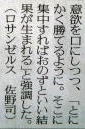 意欲を口にしつつ、「とに
かく勝てるように。そこに
集中すればおのずといい結
果が生まれる」と強調した。
（ロサンゼルス　佐野司）